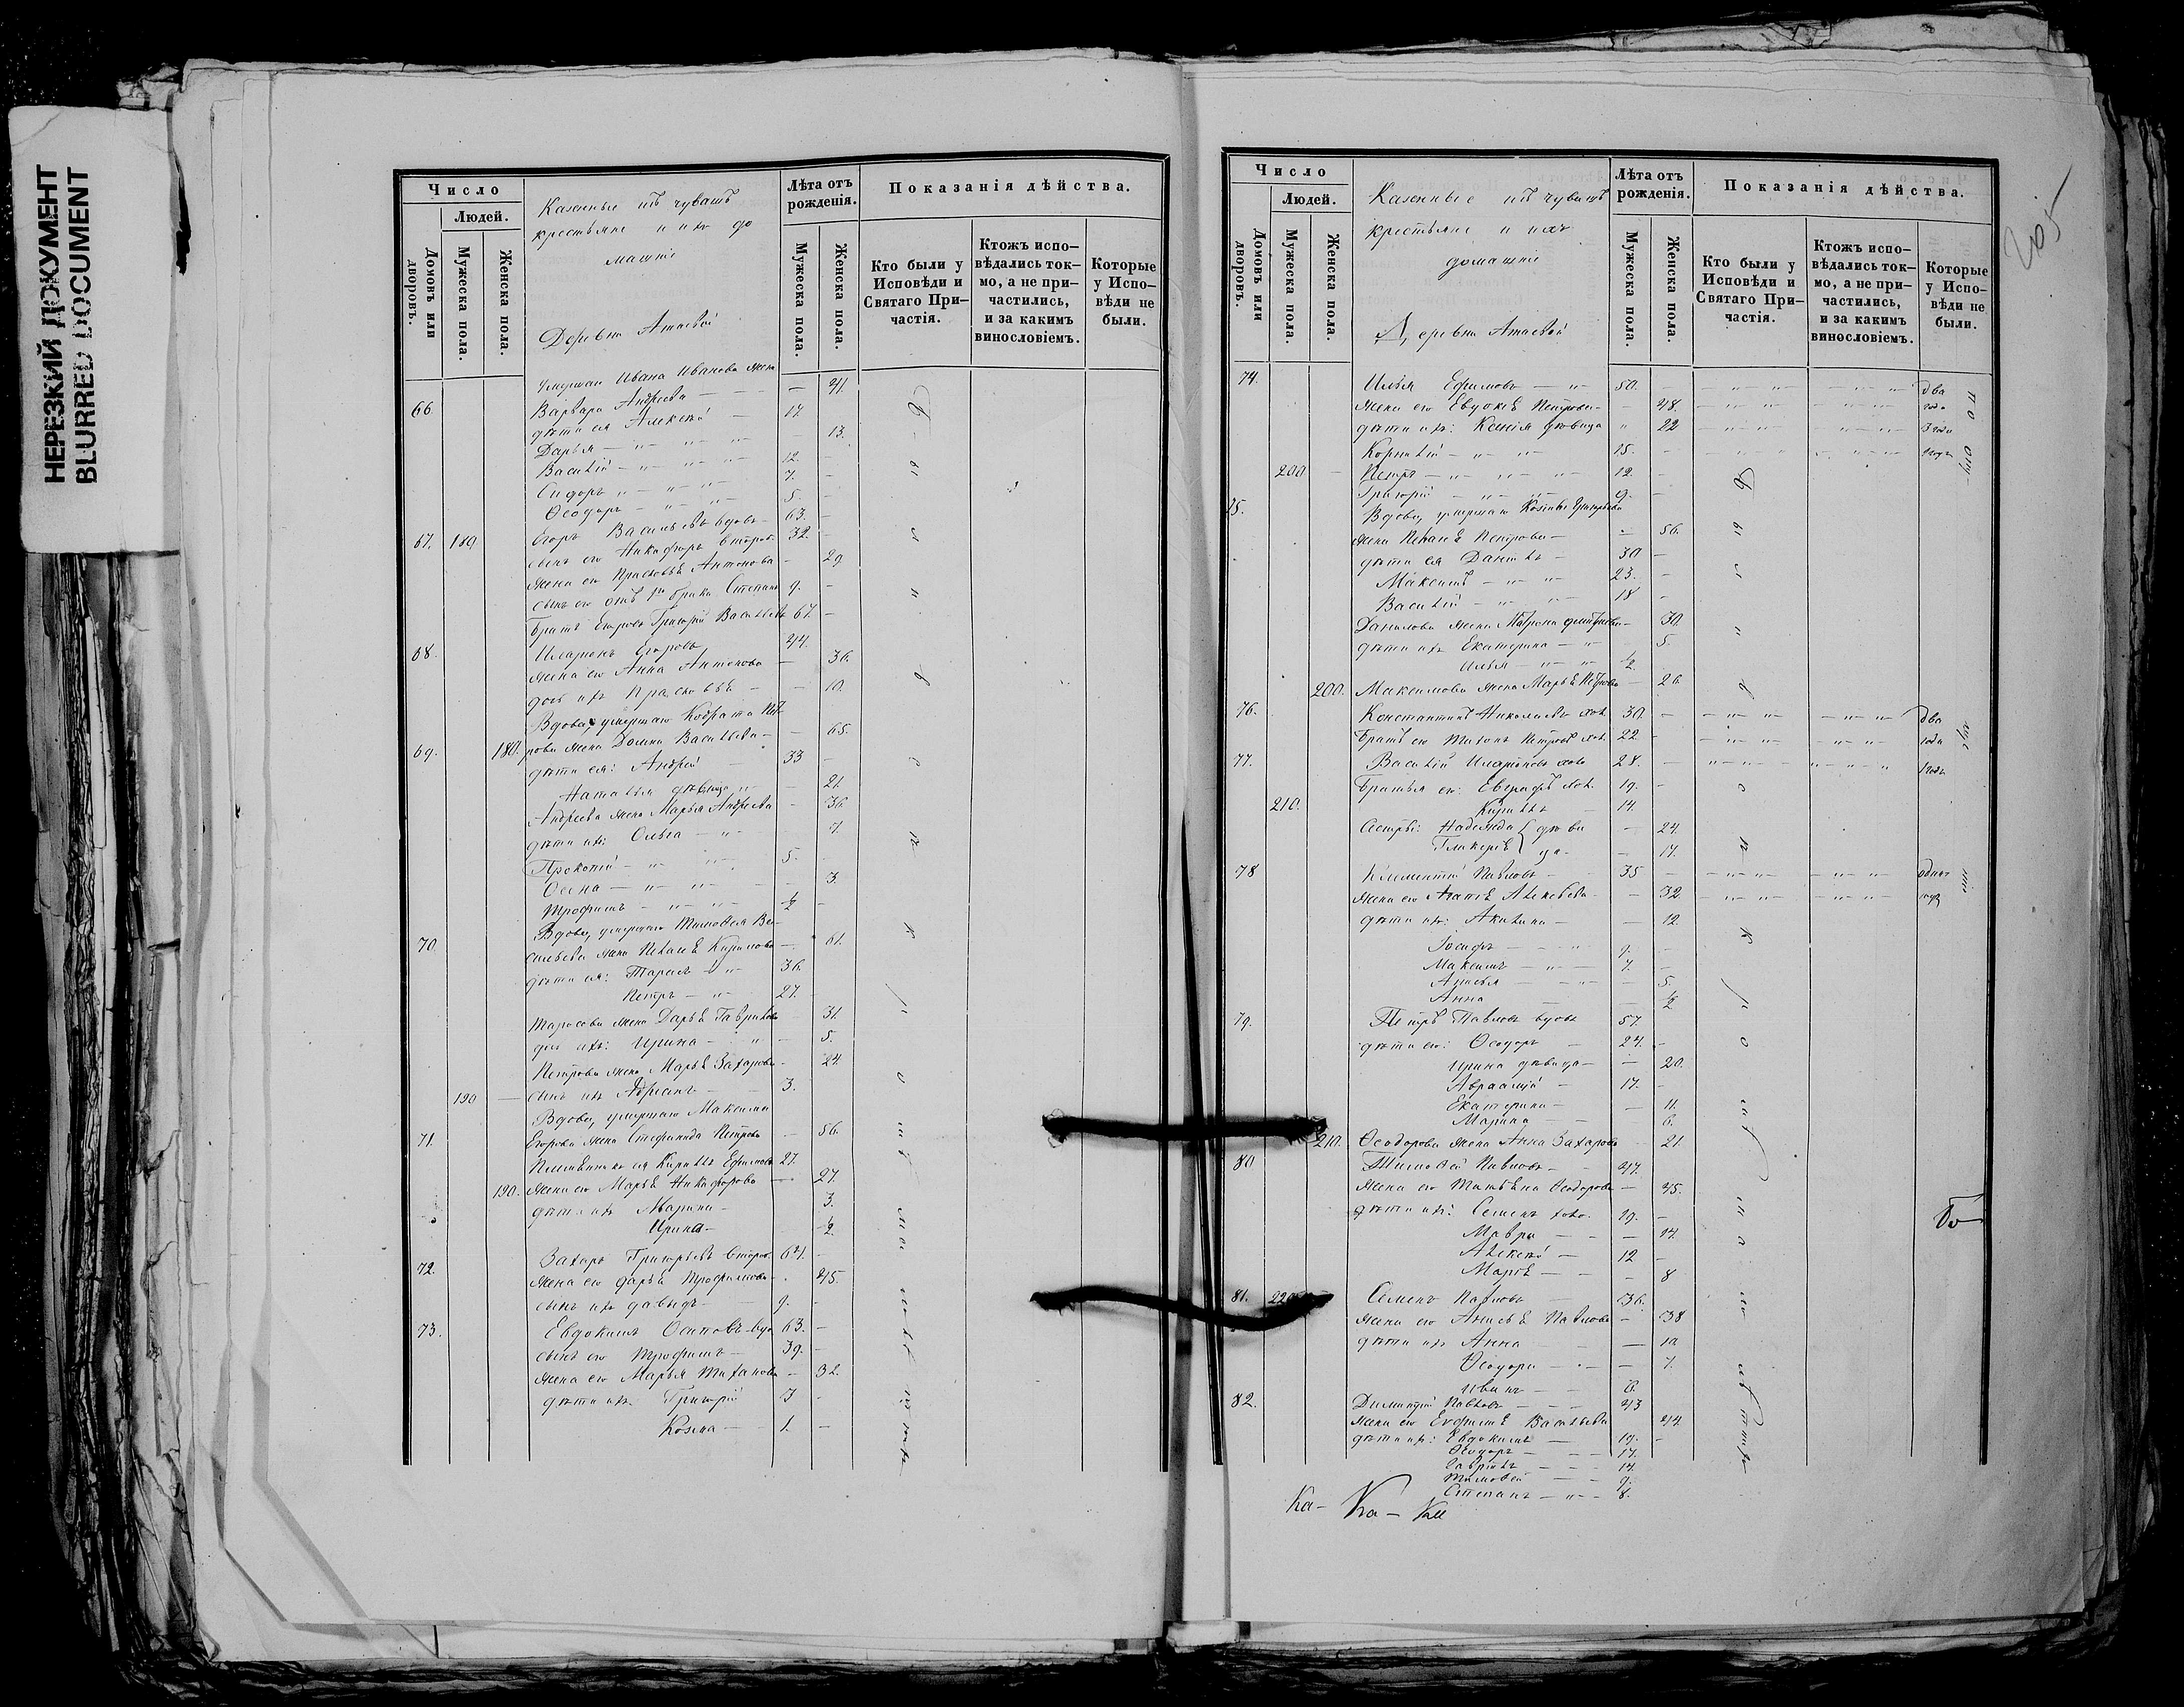 НЕРЕЗКИЙ ДОКУМЕНТ
BLURRED DOCUMENT
Число
Людей.
Домовъ или дворовъ.
Мужеска пола.
Женска пола.
Казенные изъ чувашъ
крестьяне и ихъ до
машніе
Деревня Атаевой
Лѣта отъ рожденія.
Мужеска пола.
Женска пола.
Показанія дѣйства.
Кто были у Исповѣди и Святаго Причастія.
Ктожъ исповѣдались токмо, а не причастились, и за какимъ винословіемъ.
Которые у Исповѣди не были.
умершаго Ивана Иванова жена
66. Варвара Андреева — 41.
дѣти ея Алексѣй — 17.
Дарья — 13.
Василій — 12.
Сидоръ — 7.
Ѳеодоръ — 5.
67. 180 Егоръ Васильевъ вдовъ 63.
сынъ его Никифоръ вторoбр. 32.
жена его Прасковья Антонова — 29.
сынъ его отъ 1го брака Степанъ 9.
Братъ Егоровъ Григорій Васильевъ 67.
68. Иларіонъ Егоровъ 44.
жена его Анна Антонова — 36.
дочь ихъ Прасковья — 10.
Вдова, умершаго Кодрата Пет-
69. 180. рова жена Домна Васильева — 65.
дѣти ея: Андрей 33
Наталья дѣвица — 21.
Андреева жена Марья Андреева — 36.
дѣти ихъ: Ольга — 7.
Прокопій — 5.
Ѳекла — 3.
Трофимъ — 1/2
Вдова, умершаго Тимоѳея Ва-
70 сильева жена Пелагея Кирилова — 61.
дѣти ея: Тарасъ — 36.
Петръ — 27.
Тарасова жена Дарья Гаврилова 31.
дочь ихъ: Ирина — 5.
Петрова жена Марья Захарова — 24
190 — сынъ ихъ Адріанъ — 3.
Вдова, умершаго Максима
71. Егорова жена Стефанида Петрова — 56.
Племянникъ ея Кирилъ Ефимовъ 27.
190. жена его Марья Никифорова — 27.
дѣти ихъ Марина — 3.
Ирина — 1/2
72. Захаръ Григорьевъ 64.
жена его Дарья Трофимова — 45.
сынъ ихъ Давыдъ — 9.
73. Евдокимъ Осиповъ вдо. 63.
сынъ его Трофимъ — 39.
жена его Марья Тиханова — 32.
дѣти ихъ Григорій 3
Козма — 1.
205
Число
Людей.
Домовъ или дворовъ.
Мужеска пола.
Женска пола.
Казенные изъ чувашъ
крестьяне и ихъ
домашніе
Деревня Атаевой
Лѣта отъ рожденія.
Мужеска пола.
Женска пола.
Показанія дѣйства.
Кто были у Исповѣди и Святаго Причастія.
Ктожъ исповѣдались токмо, а не причастились, и за какимъ винословіемъ.
Которые у Исповѣди не были.
74. Илья Ефимовъ — 50. два
жена его Евдокія Петрова — 48. года
дѣти ихъ: Ксенія дѣвица 22 3 года
Корнилій — 15. 1 годъ
200 — Петръ — 12
Григорій — 9.
75. Вдова, умершаго Козмы Григорьева
жена Пелагея Петрова — 56.
дѣти ея Данилъ — 30
Максимъ — 23.
Василій — 18
Данилова жена Матрона Дмитріева — 30.
дѣти ихъ Екатерина — 5.
Илья — 1/2
200. Максимова жена Марья Петрова — 26.
76. Константинъ Николаевъ хол. 30. два
Братъ его Тихонъ Петровъ хол. 22. года
77. Василій Иларіоновъ холо 28. 1 годъ
Братья его: Евграфъ хол. 19.
210. Кирилъ — 14.
Сестры: Надежда дѣви — 24.
Гликерія ца — 17.
78 Климентій Павловъ — 35 одинъ
жена его Агапія Алексѣева — 32. годъ
дѣти ихъ: Акилина — 12.
Іосифъ — 9.
Максимъ — 7.
Анисья — 5.
Анна — 1/2
79. Петръ Павловъ вдовъ 57.
дѣти его: Ѳеодоръ 24.
Ирина дѣвица — 20.
Авраамій — 17.
Екатерина — 11.
Марина — 6.
210. Ѳеодорова жена Анна Захарова 21
80 Тимоѳей Павловъ — 47.
жена его Татьяна Ѳеодорова — 45.
дѣти ихъ: Семенъ холо. 19.
Мавра — 14.
Алексѣй — 12
Марія — 8
81. 220 Семенъ Павловъ 36.
жена его Анисья Павлова — 38
дѣти ихъ Анна — 10
Ѳеодора — 7.
Иванъ — 6.
82. Димитрій Павловъ — 43
жена его Евфимія Васильева 44.
дѣти ихъ: Евдокимъ — 19.
Ѳеодоръ — 17.
Гаврилъ — 14.
Тимоѳей — 9.
Степанъ — 8.
Ка- Ка-